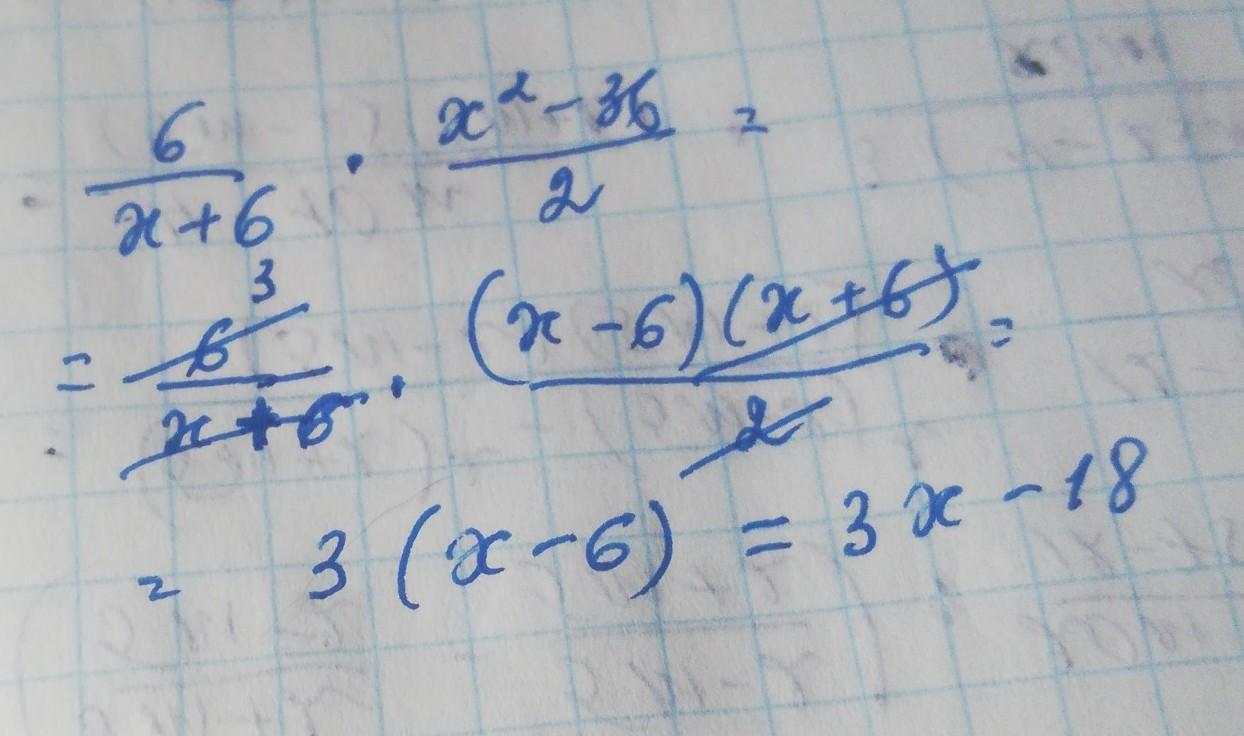 6/(x+6) · (x²-36)/2 =
= 6 3/(x+6) · (x-6)(x+6)/2 =
= 3(x-6) = 3x-18